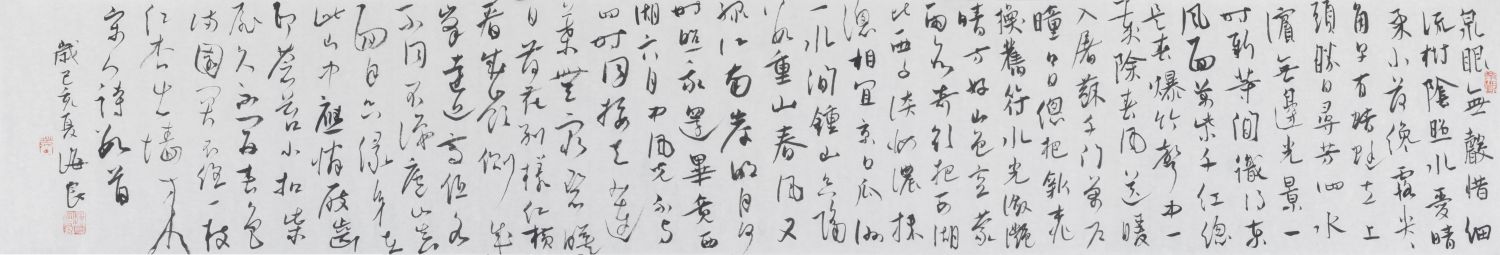 泉眼無聲惜細
流樹陰照水愛晴
柔小荷纔露尖尖
角早有蜻蜓立上
頭勝日尋芳泗水
濱無邊光景一
時新等閒識得東
風面萬紫千紅總
是春爆竹聲中一
歲除春風送暖
入屠蘇千門萬戶
曈曈日總把新桃
換舊符水光瀲灩
晴方好山色空蒙
雨亦奇欲把西湖
比西子淡妝濃抹
總相宜京口瓜洲
一水間鍾山只隔
數重山春風又
綠江南岸明月何
時照我還畢竟西
湖六月中風光不與
四時同接天蓮
葉無窮碧映
日荷花別樣紅橫
看成嶺側成
峯遠近高低各
不同不識廬山真
面目只緣身在
此山中應憐屐齒
印蒼苔小扣柴
扉久不開春色
滿園關不住一枝
紅杏出墻來
宋人詩數首
歲己亥夏海